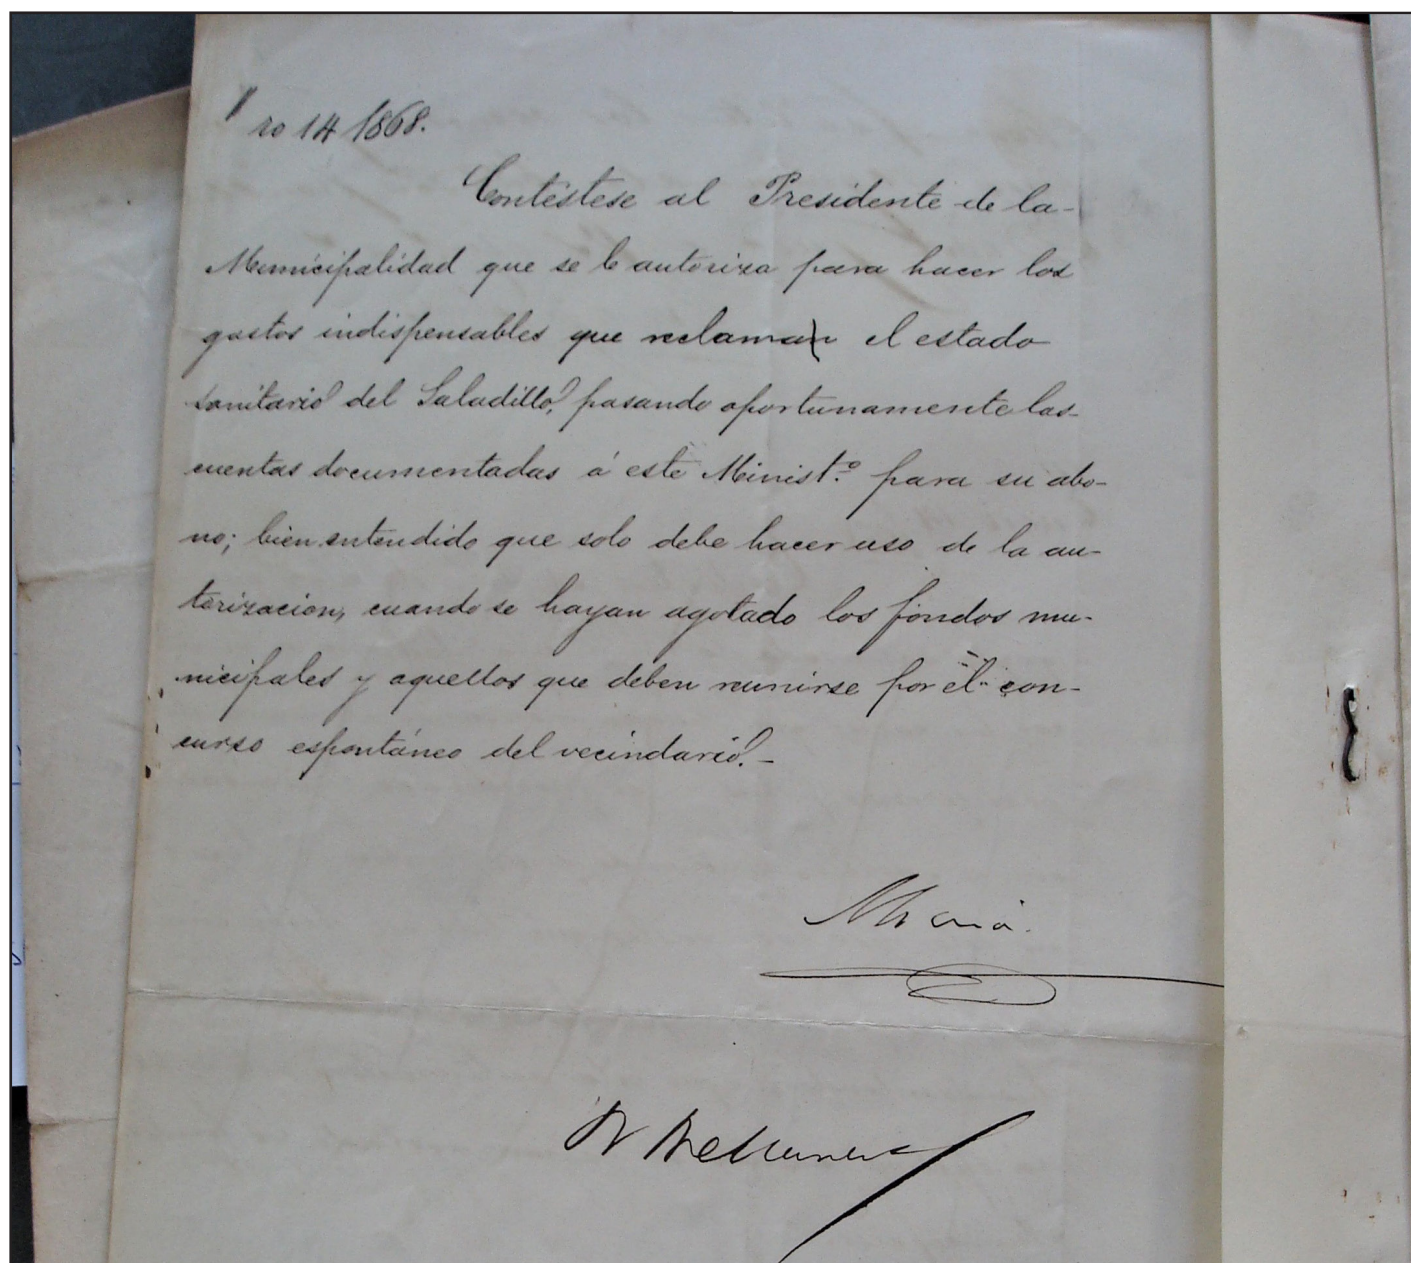 ro 14 1868.
Contéstese al Presidente de la-
Municipalidad que se le autoriza para hacer los
gastos indispensables que reclaman el estado
sanitario del Saladillo, pasando oportunamente las-
cuentas documentadas á este Minist.º para su abo-
no; bien entendido que solo debe hacer uso de la au-
torizacion, cuando se hayan agotado los fondos mu-
nicipales y aquellos que deben reunirse por el con-
curso espontáneo del vecindario.-